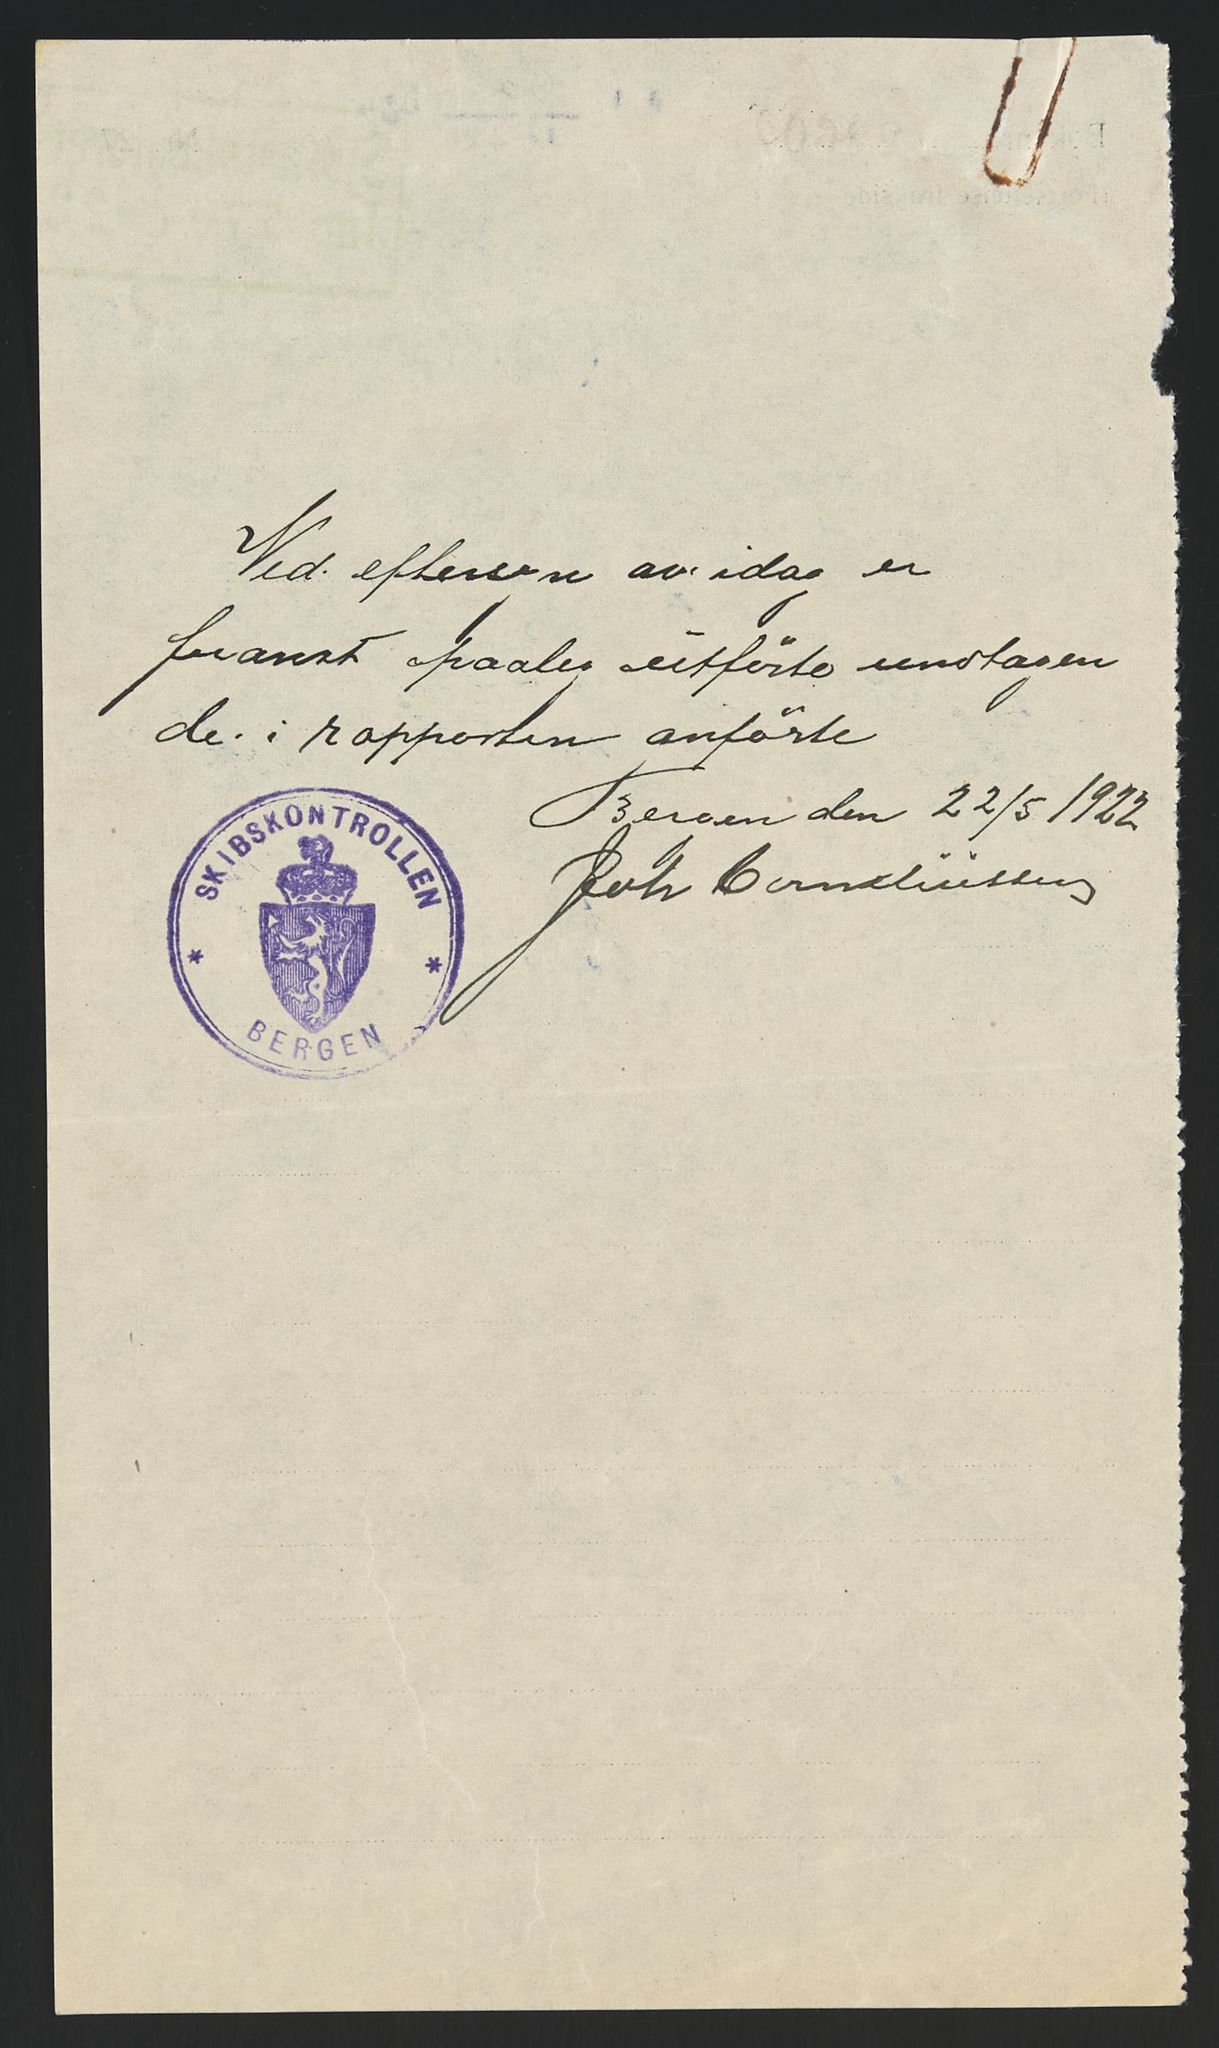 Ved eftersyn av idag er
franst paaleg utförte undtagen
de i rapporten anförte
Bergen den 22/5 1922
Joh Corneliussen
SKIBSKONTROLLEN
* *
BERGEN